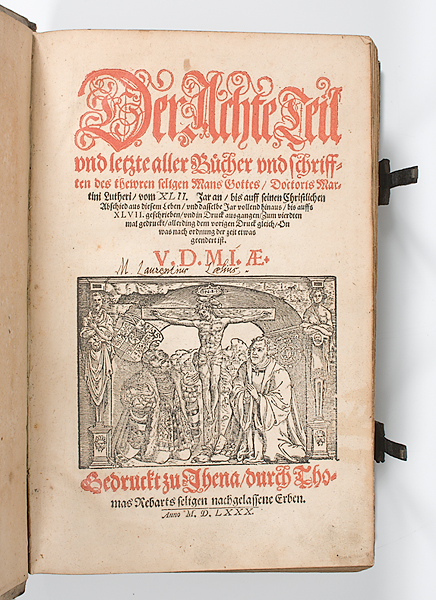 Der Achte Teil
vnd letzte aller Bücher vnd schriff-
ten des thewren seligen Mans Gottes / Doctoris Mar-
tini Lutheri / vom XLII. Jar an / bis auff seinen Christlichen
Abschied aus diesem Leben / vnd dasselbe Jar vollend hinaus / bis auffs
XLVII. geschrieben / vnd in Druck ausgangen / Zum vierdten
mal gedruckt / allerding dem vorigen Druck gleich / On
was nach ordnung der zeit etwas
geendert ist.
V. D. M. I. Æ.
M. Laurentius
INRI
Gedruckt zu Jhena / durch Tho-
mas Rebarts seligen nachgelassene Erben.
Anno M. D. LXXX.